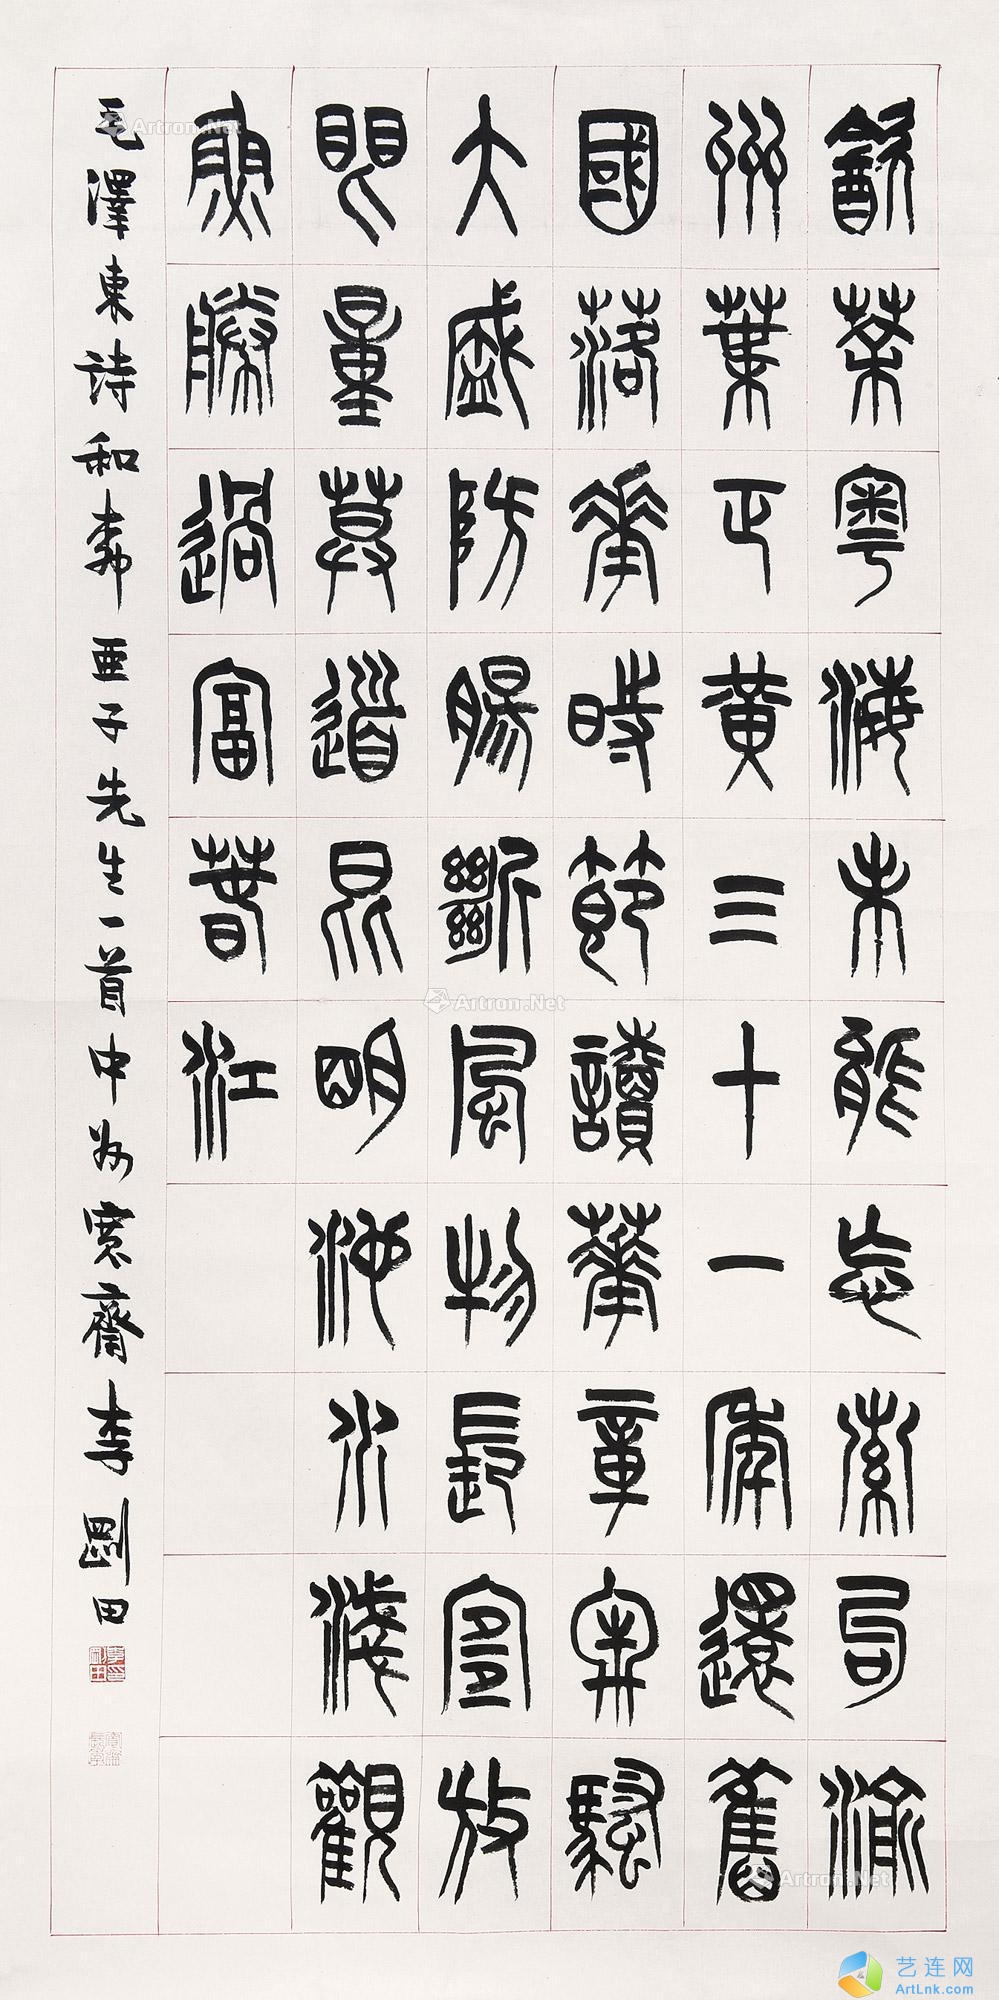 飲茶粵海未能忘索句渝
州葉正黃三十一年還舊
國落花時節讀華章牢騷
大盛防腸斷風物長宜放
眼量莫道昆明池水淺觀
魚勝過富春江
毛澤東詩和柳亞子先生一首中州寬齋李剛田
Artron.Net
Artron.Net
Artron.Net
艺连网
ArtLnk.com